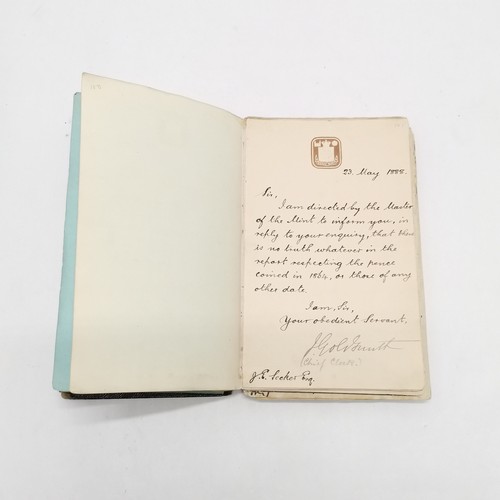 23. May 1888.
Sir,
I am directed by the Master
of the Mint to inform you, in
reply to your enquiry, that there
is no truth whatever in the
report respecting the pence
coined in 1864, or those of any
other date.
I am, Sir,
Your obedient Servant,
J. Goldsmith
(Chief Clerk.)
Esq.